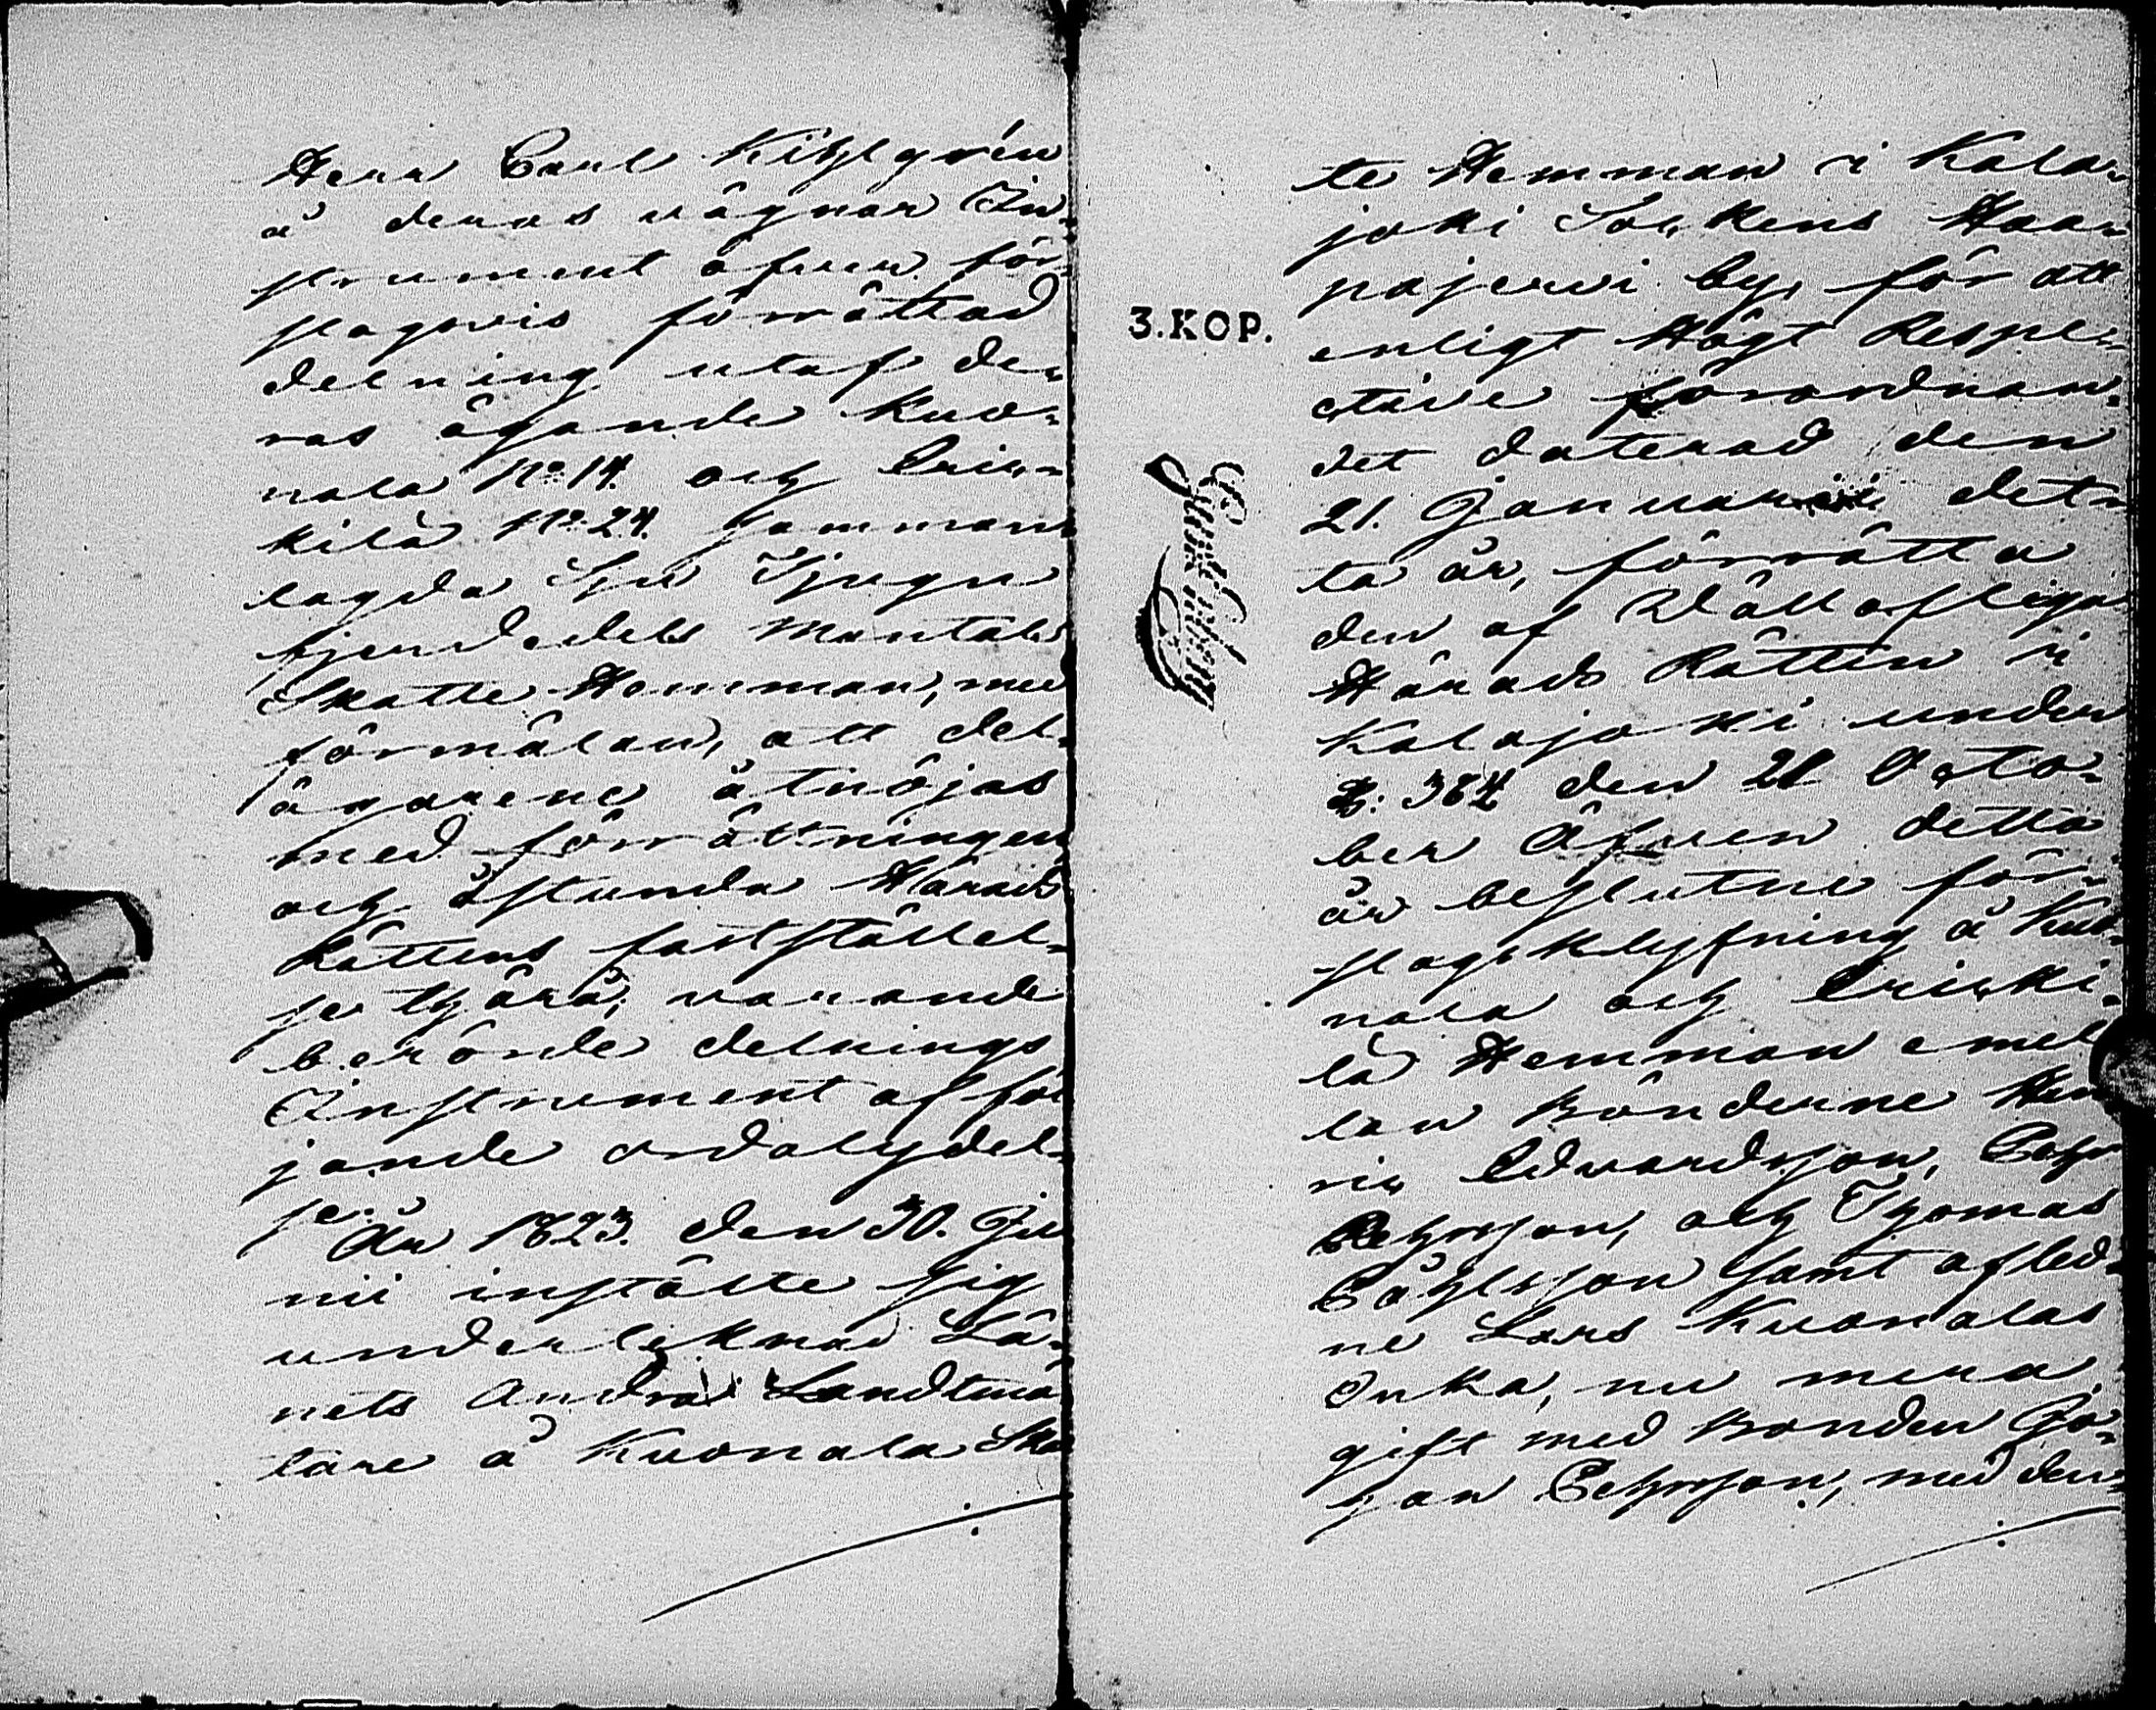 Herr Carl Kihlgrén
å deras vägnar In-
strument öfver för-
slagsvis förrättad
delning utaf de-
ras ägande Kuo-
nala No. 14. och Eric-
kilä No. 24. samman-
lagda Sju Tjugu
fjerdedels Mantals
Skatte Hemman, med
förmälan, att del-
ägarene åtnöjas
med förrättningen
och åstunda Härads
Rättens fastställel-
se thärå; varande
berörde delnings
Instrument af föl
jande ordalydel-
se.
År 1823. den 30. Ju
nii instälte sig
underteknad Lä-
nets Andra Landtmä
tare å Kuonala Ska
te Hemman i Kala-
joki Sockens Haa-
pajerwi by, för att
enligt Högt Respe-
ctive förordnan-
det daterad den
21. Januarii det-
ta år, förrätta
den af Vällofliga
Härads Rätten i
Kalajoki under
§: 384 den 21 Octo-
ber Äfven detta
år beslutne för-
slagsklyfning å Kuo-
nala och Ericki-
lä Hemman emel
lan Bönderne Hen
ric Edvardsson, Pehr
Pehrsson, och Thomas
Påhlsson samt afled-
ne Lars Kuonalas
Enka, nu mera
gift med Bonden Gö-
ran Pehrsson, med den-
3.KOP.